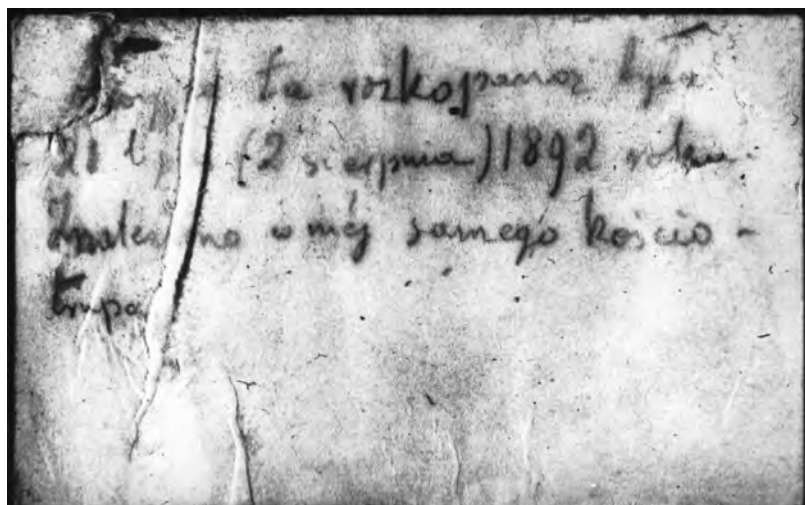 ta rozkopana była
21 lipca (2 sierpnia) 1892 roku
Znaleziono w niéj samego kościo-
trupa